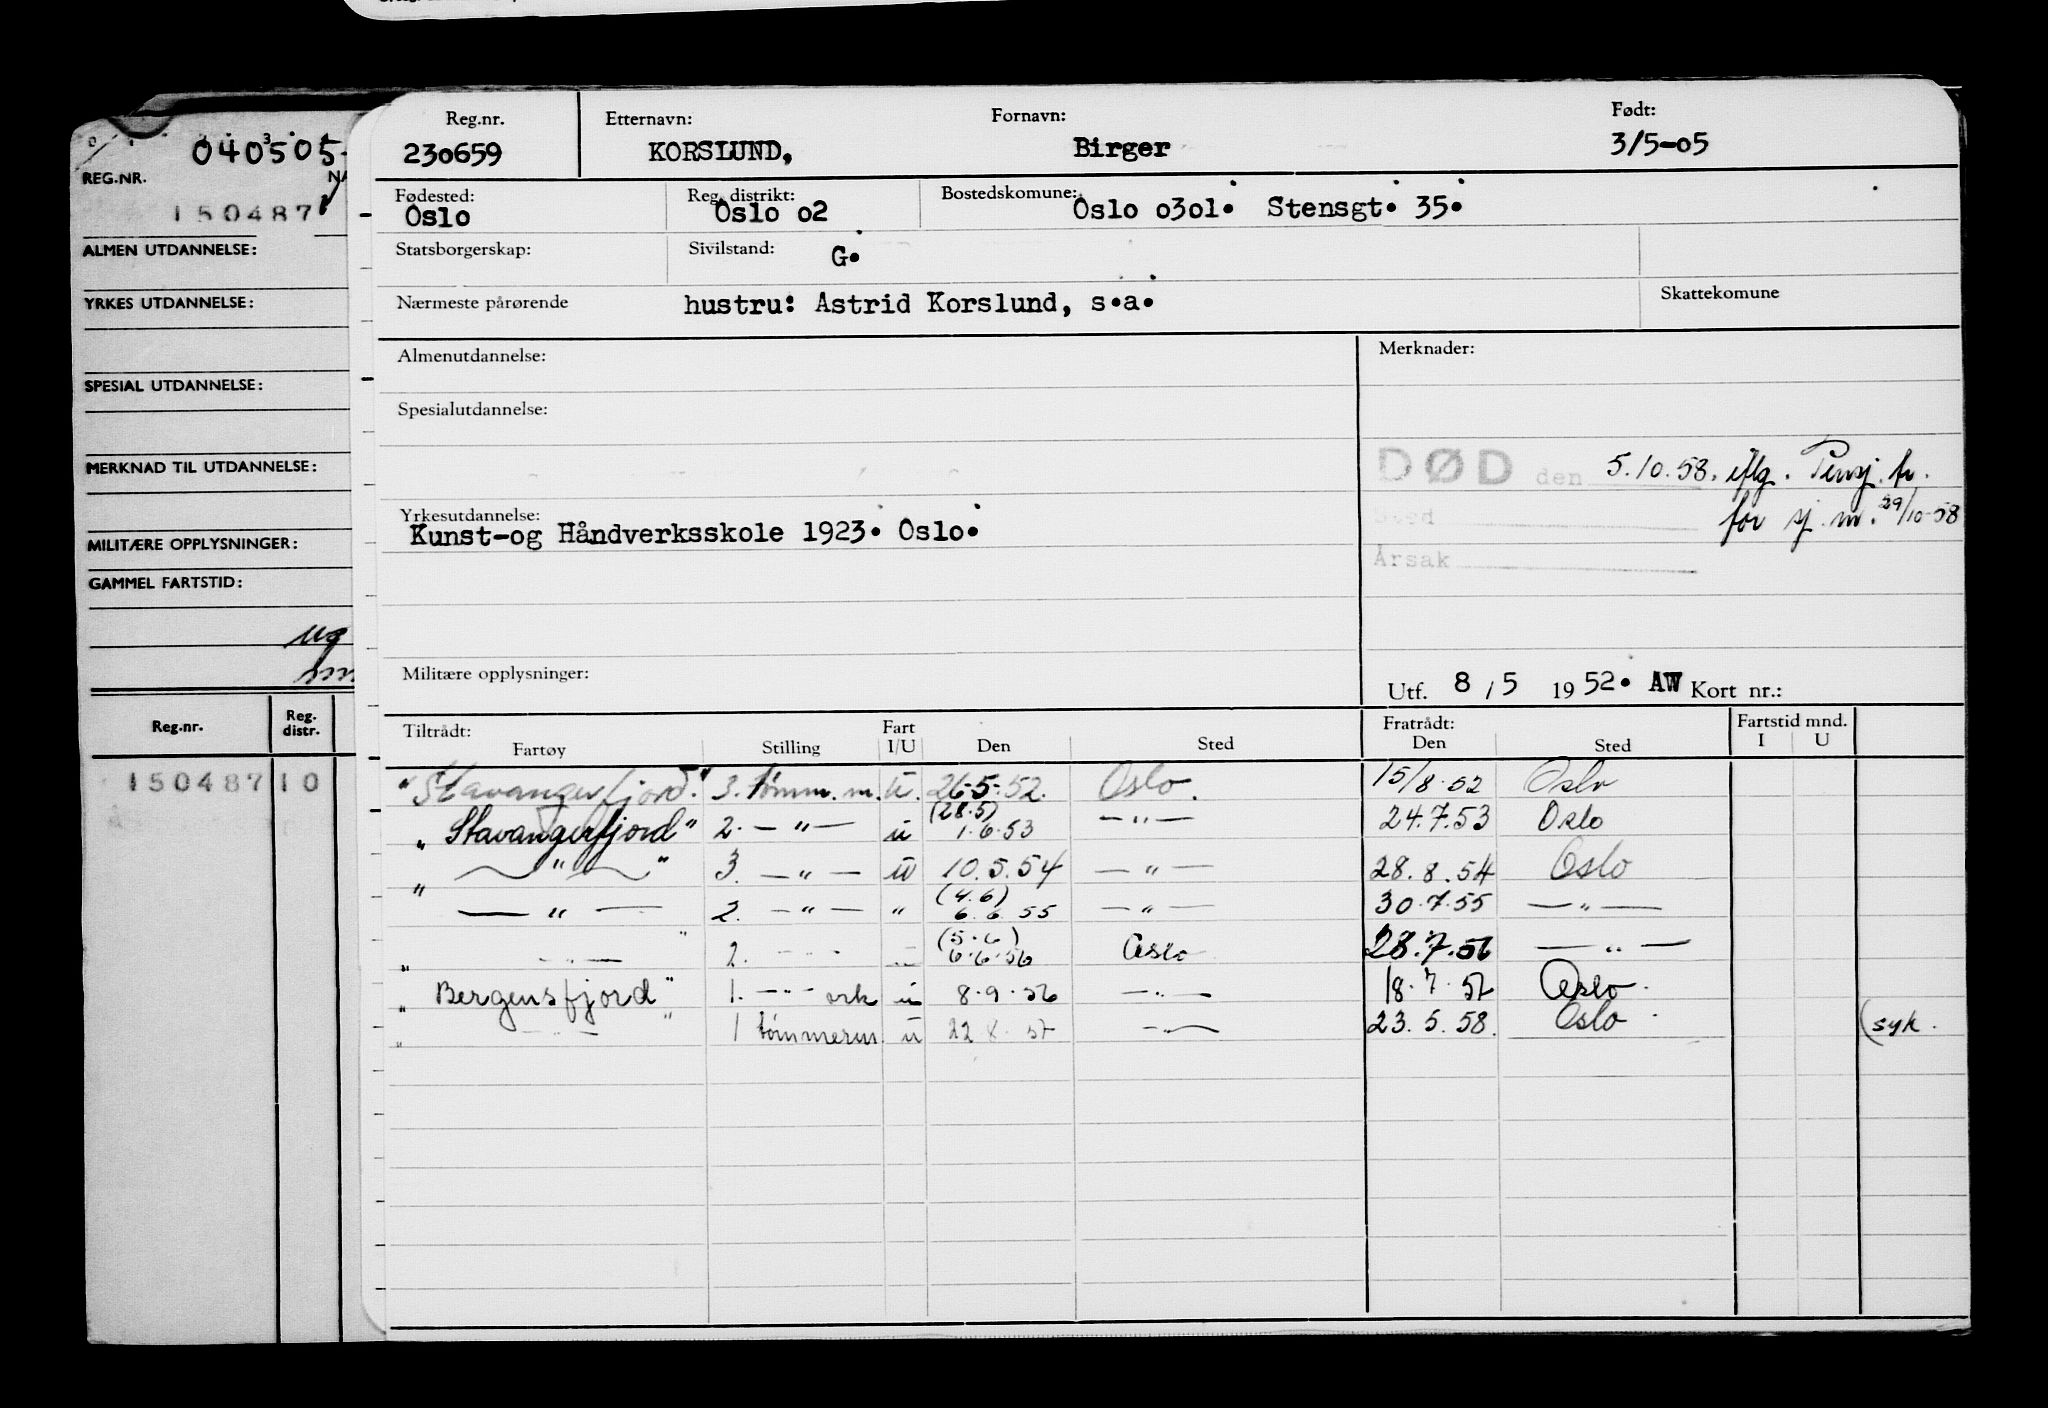 040505
REG.NR.
150487
ALMEN UTDANNELSE:
YRKES UTDANNELSE:
SPESIAL UTDANNELSE:
MERKNAD TIL UTDANNELSE:
MILITÆRE OPPLYSNINGER:
GAMMEL FARTSTID:
Reg.nr. Reg. distr.
150487 10
Reg.nr. Etternavn: Fornavn: Født:
230659 KORSLUND, Birger 3/5-05
Fødested: Reg. distrikt: Bostedskomune:
Oslo Oslo o2 Oslo o3o1. Stensgt. 35.
Statsborgerskap: Sivilstand: G.
Nærmeste pårørende hustru: Astrid Korslund, s.a. Skattekomune
Almenutdannelse: Merknader:
Spesialutdannelse:
DØD den 5.10.58. iflg. Pensj. tr.
Sted for sj.m. 29/10-58
Årsak
Yrkesutdannelse:
Kunst-og Håndverksskole 1923. Oslo.
Militære opplysninger:
Utf. 8/5 1952. AW Kort nr.:
Tiltrådt: Fart Fratrådt: Fartstid mnd.
Fartøy Stilling I/U Den Sted Den Sted I U
"Stavangerfjord." 3. tømm.m. U. 26-5-52. Oslo. 15/8.52 Oslo
"Stavangerfjord" 2. — " — u (28.5) 1.6.53 — " — 24.7.53 Oslo
" — " — " 3. — " — u 10.5.54 — " — 28.8.54 Oslo
— " — 2. — " — " (4.6) 6.6.55 — " — 30.7.55 — " —
" — " — " 2. — " — (5.6) 6.6.56 Oslo 28.7.56 — " —
"Bergensfjord" 1. — " — ark u 8.9.56 — " — 18.7.57 Oslo.
" — " 1 tømmerm u 22 8.57 — " — 23.5.58. Oslo. (syk.